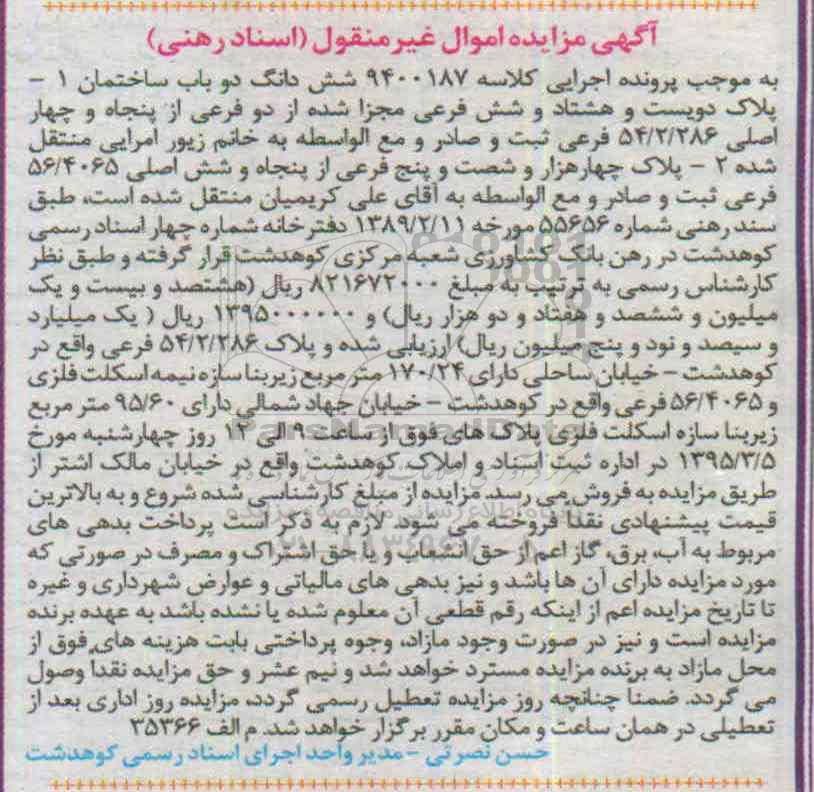 آگهی مزایده اموال غیرمنقول (اسناد رهنی)
به موجب پرونده اجرایی کلاسه ۹۴۰۰۱۸۷ شش دانگ دو باب ساختمان ۱ –
پلاک دویست و هشتاد و شش فرعی مجزا شده از دو فرعی از پنجاه و چهار
اصلی ۵۴/۲/۲۸۶ فرعی ثبت و صادر و مع الواسطه به خانم زیور امرایی منتقل
شده ۲ – پلاک چهارهزار و شصت و پنج فرعی از پنجاه و شش اصلی ۵۶/۴۰۶۵
فرعی ثبت و صادر و مع الواسطه به آقای علی کریمیان منتقل شده است، طبق
سند رهنی شماره ۵۵۶۵۶ مورخه ۱۳۸۹/۲/۱۱ دفترخانه شماره چهار اسناد رسمی
کوهدشت در رهن بانک کشاورزی شعبه مرکزی کوهدشت قرار گرفته و طبق نظر
کارشناس رسمی به ترتیب به مبلغ ۸۲۱۶۷۲۰۰۰ ریال (هشتصد و بیست و یک
میلیون و ششصد و هفتاد و دو هزار ریال) و ۱۳۹۵۰۰۰۰۰۰ ریال ( یک میلیارد
و سیصد و نود و پنج میلیون ریال) ارزیابی شده و پلاک ۵۴/۲/۲۸۶ فرعی واقع در
کوهدشت – خیابان ساحلی دارای ۱۷۰/۲۴ متر مربع زیربنا سازه نیمه اسکلت فلزی
و ۵۶/۴۰۶۵ فرعی واقع در کوهدشت – خیابان جهاد شمالی دارای ۹۵/۶۰ متر مربع
زیربنا سازه اسکلت فلزی پلاک های فوق از ساعت ۹ الی ۱۲ روز چهارشنبه مورخ
۱۳۹۵/۳/۵ در اداره ثبت اسناد و املاک کوهدشت واقع در خیابان مالک اشتر از
طریق مزایده به فروش می رسد. مزایده از مبلغ کارشناسی شده شروع و به بالاترین
قیمت پیشنهادی نقدا فروخته می شود. لازم به ذکر است پرداخت بدهی های
مربوط به آب، برق، گاز اعم از حق انشعاب و یا حق اشتراک و مصرف در صورتی که
مورد مزایده دارای آن ها باشد و نیز بدهی های مالیاتی و عوارض شهرداری و غیره
تا تاریخ مزایده اعم از اینکه رقم قطعی آن معلوم شده یا نشده باشد به عهده برنده
مزایده است و نیز در صورت وجود مازاد، وجوه پرداختی بابت هزینه های فوق از
محل مازاد به برنده مزایده مسترد خواهد شد و نیم عشر و حق مزایده نقدا وصول
می گردد. ضمنا چنانچه روز مزایده تعطیل رسمی گردد، مزایده روز اداری بعد از
تعطیلی در همان ساعت و مکان مقرر برگزار خواهد شد. م الف ۳۵۳۶۶
حسن نصرتی – مدیر واحد اجرای اسناد رسمی کوهدشت
ParsNamadData